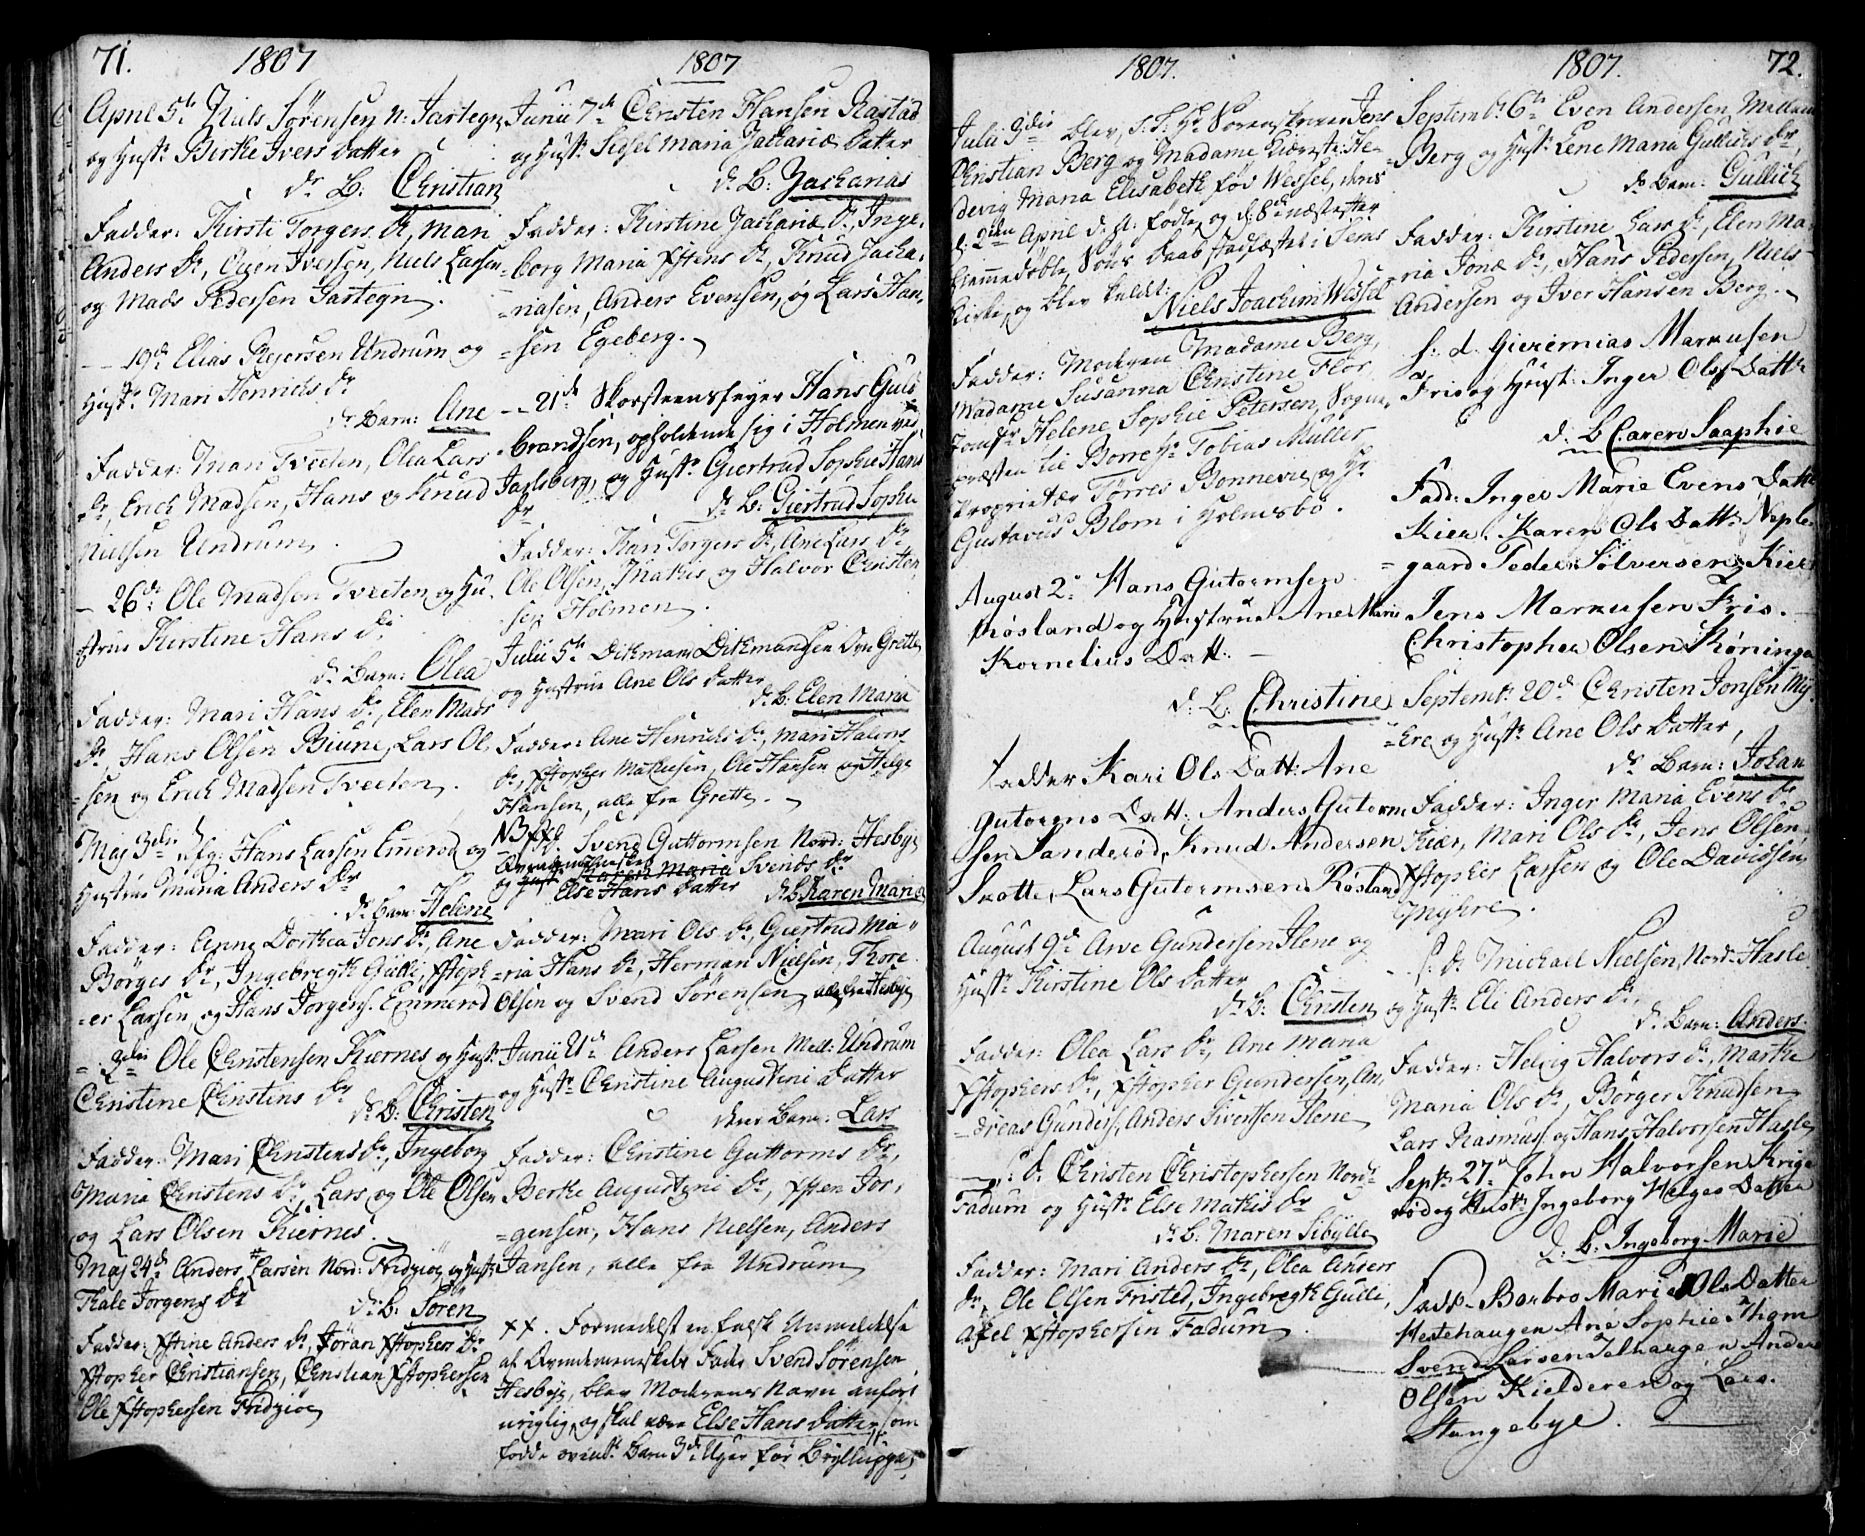 71. 1807
April 5te Niels Sørensen N: Jartegn
og Hustr. Berthe Ivers datter
dr. B: Christian
Fadder: Kirsti Torgers Dr, Mari
Anders Dr, Even Iversen, Niels Larsen
og Mads Pedersen Jartegn.
- - 19de Elias Rejersen Undrum og
Hustr. Mari Henrichs Dr
dr. Barn: Ane
Fadder: Mari Tveten, Olea Lars
Dr, Erich Madsen, Hans og Knud
Nielsen Undrum.
- 26de Ole Madsen Tveten og Hu-
strue Kirstine Hans dr
dr. Barn: Olea
Fadder: Mari Hans Dr, Elen Mads
Dr, Hans Olsen Biune, Lars Ol-
sen og Erich Madsen Tveten.
Maj 3die Hans Larsen Emerod og
Hustrue Maria Anders Dr
dr. Barn: Helene
Fadder: Anne Dorthea Jens Dr, Ane
Børges Dr, Ingebregth Gulli, Xstoph-
er Larsen, og Hans Jørgens. Emmerod
- 3die Ole Christensen Kiernes og Hustr.
Christine Christens Dr
dr. B: Christen
Fadder: Mari Christens Dr, Ingeborg
Maria Christens Dr, Lars og Ole Olsen
og Lars Olsen Kiernes.
Maj 24de Anders Larsen Nord: Fridgiøe og Hustr.
Thale Jørgens Dr
dr. B: Søren
Fadder: Xstine Anders Dr, Jøran Xstophers Dr
Xstopher Christiansen, Christian Xstophersen
Ole Xstophersen Fridgiøe
1807
Junii 7de Christen Hansen Rastad
og Hustr. Sidsel Maria Zachariæ Datter
dr. B: Zacharias
Fadder: Kirstine Zachariæ Dr, Inge-
borg Maria Xstens Dr, Knud Zacha-
riasen, Anders Evensen, og Lars Han-
sen Egeberg.
- - 21de Skorsteensfeyer Hans Guld-
brandsen, opholdende sig i Holmen ved
Jarlsberg, og Hustr. Giertrud Sophie Hans
Dr
dr. B: Giertrud Sophie
Fadder: Kari Torgers Dr, Ane Lars Dr
Ole Olsen, Mathis og Halvor Christen-
sen Holmen.
Julii 5te Dithman Dithmansen Grette
og Hustrue Ane Ols datter
dr. B: Elen Maria
Fadder: Ane Henrichs Dr, Mari Halvors
Dr, Xstopher Mathiesen, Ole Hansen og Helge
Hansen, alle fra Grette.
NB XX. Svend Guttormsen Nord: Hesbye
og Hust. Karen Maria Svends Dr
Else Hans Datter dr. B. Karen Maria
Fadder: Mari Ols Dr, Giertrud Ma-
ria Hans Dr, Herman Nielsen, Thore
Olsen og Svend Sørensen, alle fra Hesbye
Junii 21de Anders Larsen Mell: Undrum
og Hustr. Christine Augustini datter
deres Barn: Lars
Fadder: Christine Guttorms Dr,
Berthe Augustini Dr, Xsten Jør-
gensen, Hans Nielsen, Anders
Jansen, alle fra Undrum
XX. Formedelst en falsk Anmeldelse
af Qvindemenneskets Fader Svend Sørensen
Hesbye, blev Moderens Navn anført
urigtig, og skal være Else Hans datter, som
fødde ovenst. Barn 3de Uger før Bryllupet.
1807.
Julii 3die blev, Hr. Sorenskriver Jens
Christian Berg og Madame He-
devig Maria Elisabeth fød Wessel, deres
d. 2den April d. A. fødte, og d. 8de næstefter
hiemmedøbte Søns Daab stadfæstet i Sems
Kirke, og blev kaldt:
Niels Joachim Wessel
Fadder: Moderen Madame Berg,
Madame Susanna Christine Flor,
Jomfr. Helene Sophie Petersen, Sogne-
præsten til Borre Hr. Tobias Müller,
Proprietær Tørres Bonnevie, og Hr
Gustavus Blom i Holmsbo.
August 2. Hans Gutormsen
Røsland og Hustrue Ane Marie
Kornelius Datt.
d. B. Christine
Fadder Kari Ols Datt: Ane
Gutorms Datt: Anders Gutorm
sen Sanderød, Knud Andersen
Skotte, Lars Gutormsen Røsland
August 9de Arve Gundersen Ilene og
Hustr. Kirstine Ols datter
dr. B: Christen
Fadder: Olea Lars Dr, Ane Maria
Xstophers Dr, Xstopher Gundersen, An-
dreas Gunders., Anders Sivertsen Ilene
- s. d. Christen Christophersen Nord:
Fadum og Hustr. Else Mathis Dr
dr. B: Maren Sibylle
Fadder: Mari Anders Dr, Olea Anders
Dr, Ole Olsen Fristed, Ingebregth Gulli,
Axel Xstophersen Fadum.
1807. 72.
Septemb. 6te Even Andersen Mellem
Berg og Hustr. Lene Maria Gullichs Dr,
dr. Barn: Gullich
Fadder: Kirstine Lars Dr, Elen Ma-
ria Jonæ Dr, Hans Pedersen, Niels
Andersen og Iver Hansen Berg.
s. d. Gieremias Markusen
Friis og Hust: Inger Ols Datt
d. B Caren Saaphie
Fad: Inger Marie Evens Datt
Kier. Karen Ols Datt. Neple-
gaard Peder Sølversen Kier
Jens Markusen Friis.
Christopher Olsen Røninge
Septemb: 20de Christen Jonsen My-
hre og Hustr. Ane Ols datter,
dr. Barn: Johan
Fadder: Inger Maria Evens Dr
Kiær, Mari Ols Dr, Jens Olsen,
Xstopher Larsen og Ole Davidsen
Myhre.
s. d. Michael Nielsen Nord: Hasle
og Hustr. Eli Anders Dr,
dr. Barn: Anders
Fadder: Helvig Halvors Dr, Marthe
Maria Ols Dr, Børger Knudsen
Lars Rasmuss. og Hans Halvorsen Hasle
Septr. 27de John Halvorsen Kriga-
rød og Hustr. Ingeborg Helges Datter
d. B. Ingeborg Marie
Fadd. Barbro Marie Ols Datter
Hestehaugen Ane Sophie Thom
Svend Larsen Jelhaugen Anders
Olsen Kielderen og Lars
Stangebye.